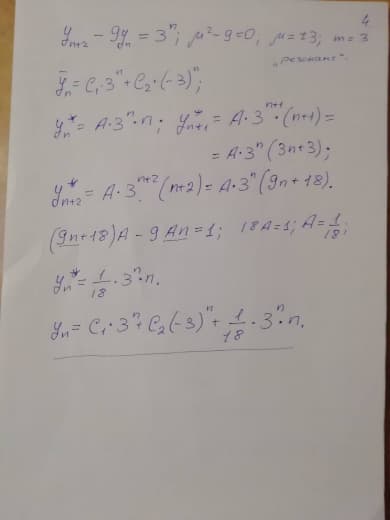 4
yₙ₊₂ - 9yₙ = 3ⁿ; μ² - 9 = 0, μ = ±3, m = 3
"резонанс".
ȳₙ = C₁·3ⁿ + C₂·(-3)ⁿ;
yₙ* = A·3ⁿ·n; yₙ₊₁* = A·3ⁿ⁺¹·(n+1) =
= A·3ⁿ(3n+3);
yₙ₊₂* = A·3ⁿ⁺²(n+2) = A·3ⁿ(9n+18).
(9n+18)A - 9An = 1; 18A = 1; A = 1/18;
yₙ* = 1/18·3ⁿ·n.
yₙ = C₁·3ⁿ + C₂(-3)ⁿ + 1/18·3ⁿ·n.